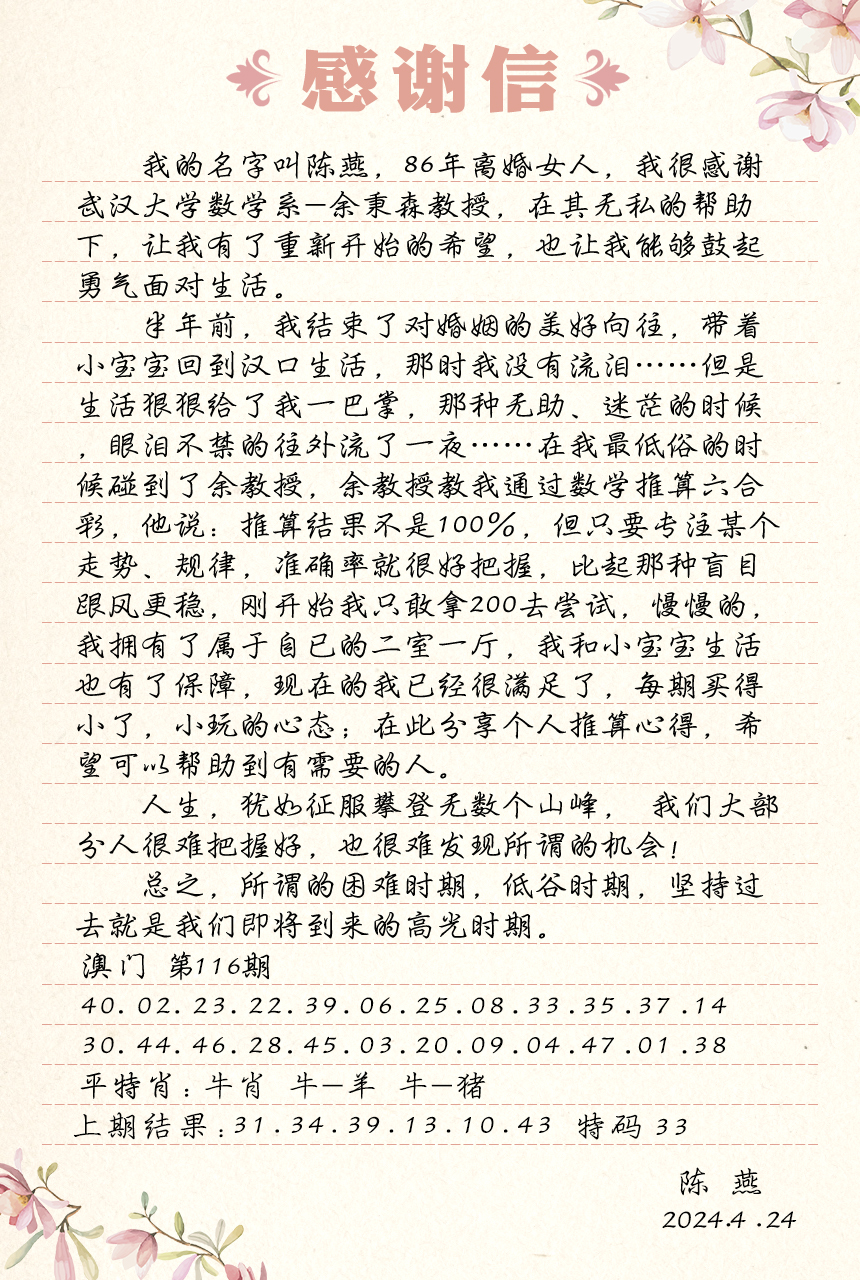 感谢信
我的名字叫陈燕，86年离婚女人，我很感谢
武汉大学数学系—余秉森教授，在其无私的帮助
下，让我有了重新开始的希望，也让我能够鼓起
勇气面对生活。
半年前，我结束了对婚姻的美好向往，带着
小宝宝回到汉口生活，那时我没有流泪……但是
生活狠狠给了我一巴掌，那种无助、迷茫的时候
，眼泪不禁的往外流了一夜……在我最低俗的时
候碰到了余教授，余教授教我通过数学推算六合
彩，他说：推算结果不是100%，但只要专注某个
走势、规律，准确率就很好把握，比起那种盲目
跟风更稳，刚开始我只敢拿200去尝试，慢慢的，
我拥有了属于自己的二室一厅，我和小宝宝生活
也有了保障，现在的我已经很满足了，每期买得
小了，小玩的心态；在此分享个人推算心得，希
望可以帮助到有需要的人。
人生，犹如征服攀登无数个山峰， 我们大部
分人很难把握好，也很难发现所谓的机会！
总之，所谓的困难时期，低谷时期，坚持过
去就是我们即将到来的高光时期。
澳门 第116期
40.02.23.22.39.06.25.08.33.35.37.14
30.44.46.28.45.03.20.09.04.47.01.38
平特肖：牛肖 牛—羊 牛—猪
上期结果：31.34.39.13.10.43 特码 33
陈 燕
2024.4.24